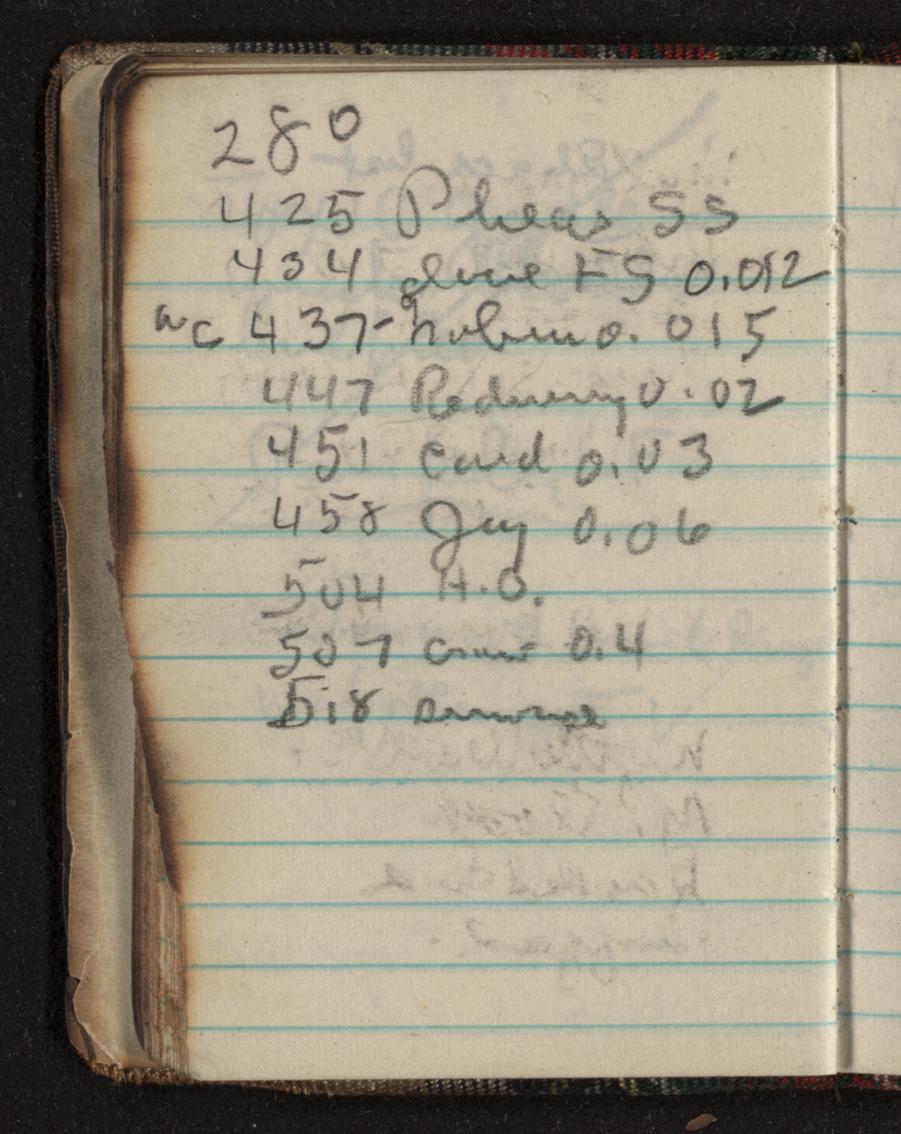 280
425 Pheas SS
434 dove FS 0.012
WC 437- robin 0.015
447 Redwing 0.02
451 card 0.03
458 Jay 0.06
504 H.O.
507 crow 0.4
518 sunrise